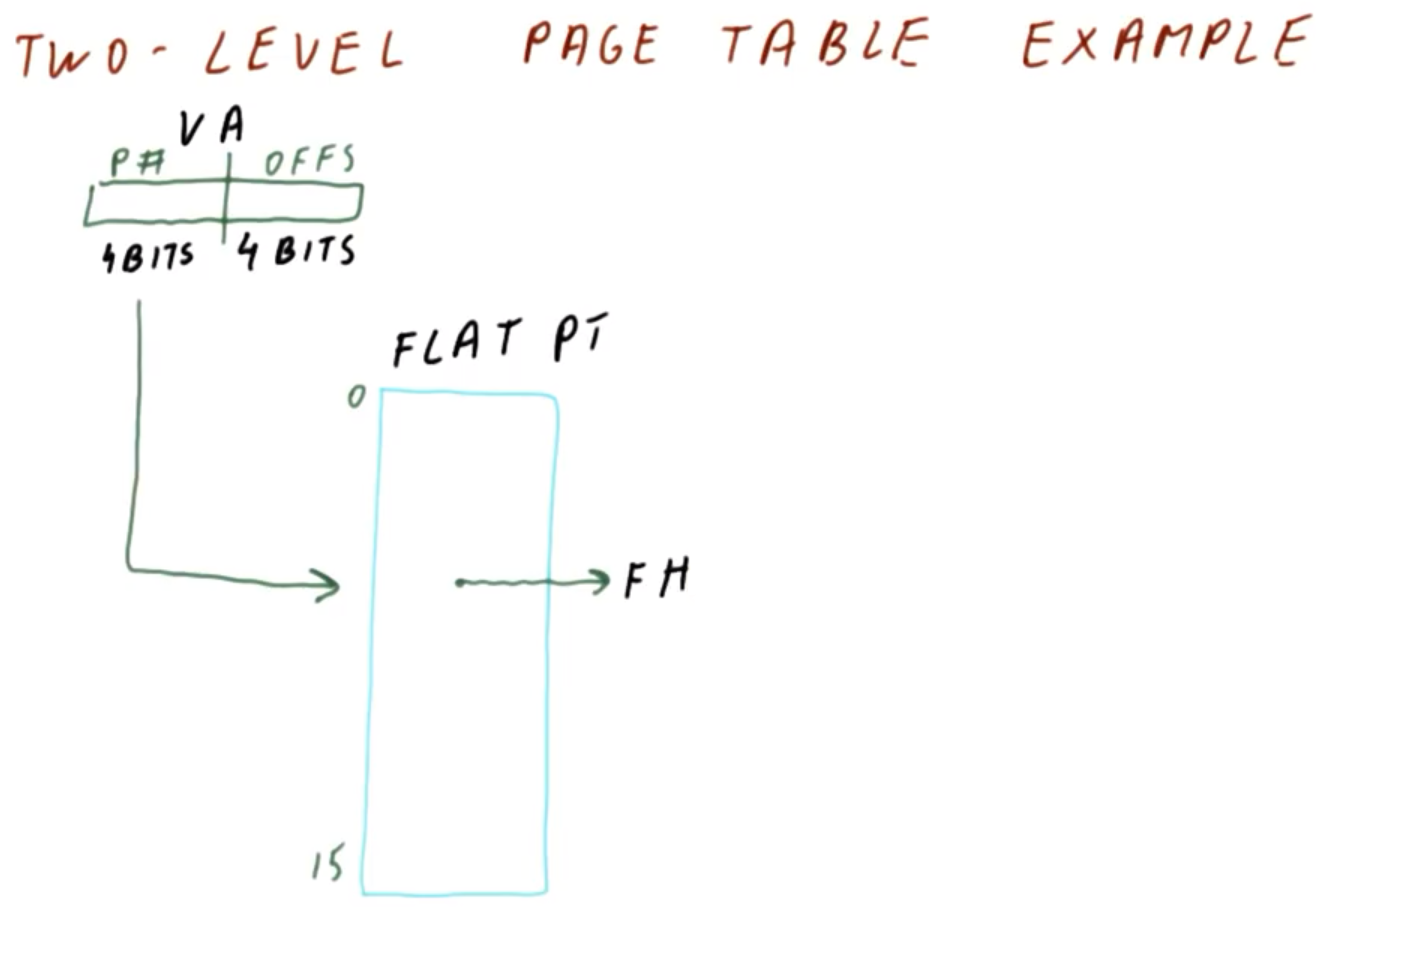 TWO-LEVEL PAGE TABLE EXAMPLE
VA
P# OFFS
4BITS 4 BITS
FLAT PT
0
FH
15